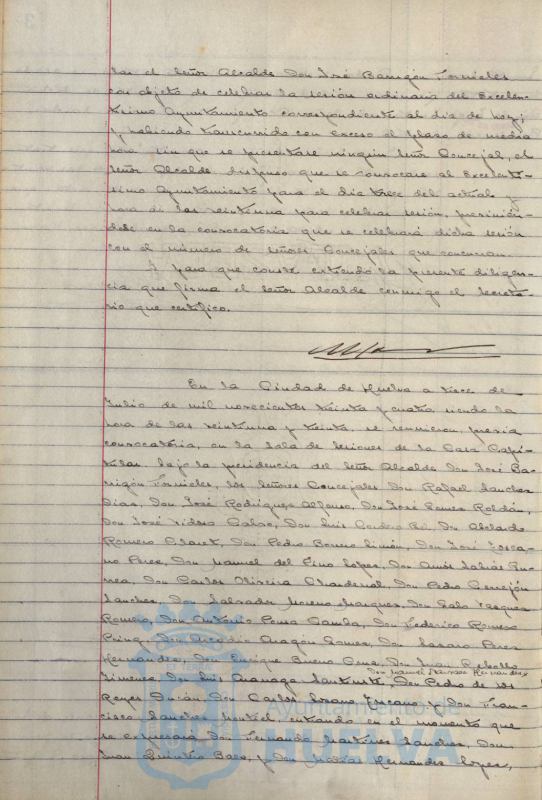 tas el Señor Alcalde Don José Barrigón Fornieles
con objeto de celebrar la sesión ordinaria del Excelen-
tísimo Ayuntamiento correspondiente al día de hoy;
y habiendo transcurrido con exceso el plazo de media
hora sin que se presentase ningún Señor Concejal, el
Señor Alcalde dispuso que se convocase al Excelentí-
simo Ayuntamiento para el día trece del actual y
hora de las veintiuna para celebrar sesión, previnién-
dole en la convocatoria que se celebrará dicha sesión
con el número de Señores Concejales que concurran.
Y para que conste extiendo la presente diligen-
cia que firma el Señor Alcalde conmigo el Secreta-
rio que certifico.
En la Ciudad de Huelva a trece de
Julio de mil novecientos treinta y cuatro, siendo la
hora de las veintiuna y treinta, se reunieron, previa
convocatoria, en la Sala de Sesiones de la Casa Capi-
tular, bajo la presidencia del Señor Alcalde Don José Ba-
rrigón Fornieles, los Señores Concejales Don Rafael Sanchez
Diaz, Don José Rodriguez Alfonso, Don José Gomez Roldán,
Don José Isidro Don Luis Cordero Don Abelardo
Romero Claret, Don Pedro Borrero Limón, Don José Tosca-
no Perez, Don Manuel del Pino Lopez, Don
Don Carlos Oliveira Chardenal, Don Pedro Cerrejón
Sanchez, Don Salvador Moreno Marquez, Don Galo Vazquez
Romero, Don Antonio Poma Gamba, Don Federico Romero
Don Arcadio Aragón Gomez, Don Lazaro Perez
Hernandez, Don Enrique Bueno Don Juan Rebollo
Don Manuel Hernandez
Jimenez, Don Luis Don Pedro de los
Reyes Don Carlos Lozano y Don Fran-
cisco Sanchez entrando en el momento que
se expresará Don Fernando Martinez Sanchez, Don
Juan Quintero Baez, y Don Matias Hernandez Lopez,
Ayuntamiento de
HUELVA